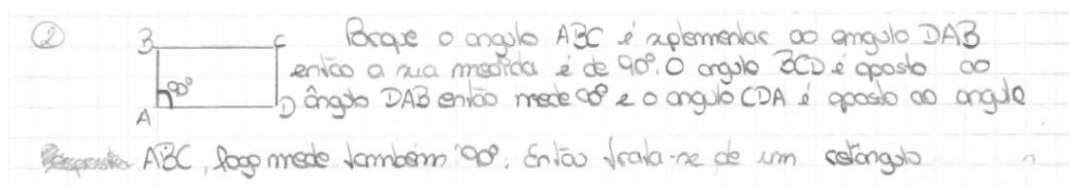 ② B C Porque o angulo ABC é suplementar ao angulo DAB
então a sua medida é de 90°. O angulo BCD é oposto ao
90°
A D ângulo DAB então mede 90° e o angulo CDA é oposto ao angulo
ABC, logo mede também 90°. Então trata-se de um retângulo